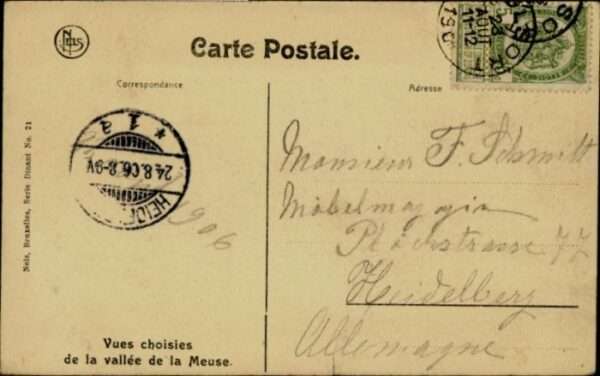 NELS
Carte Postale.
SORT
23
AOUT
11-12
190
Correspondance
Adresse
* 1 a
24.8.06.8-9V
HEIDE
1906
Monsieur F. Schmitt
Möbelmagazin
Plöckstrasse 77
Heidelberg
Allemagne
Nels, Bruxelles, Serie Dinant No. 21
Vues choisies
de la vallée de la Meuse.